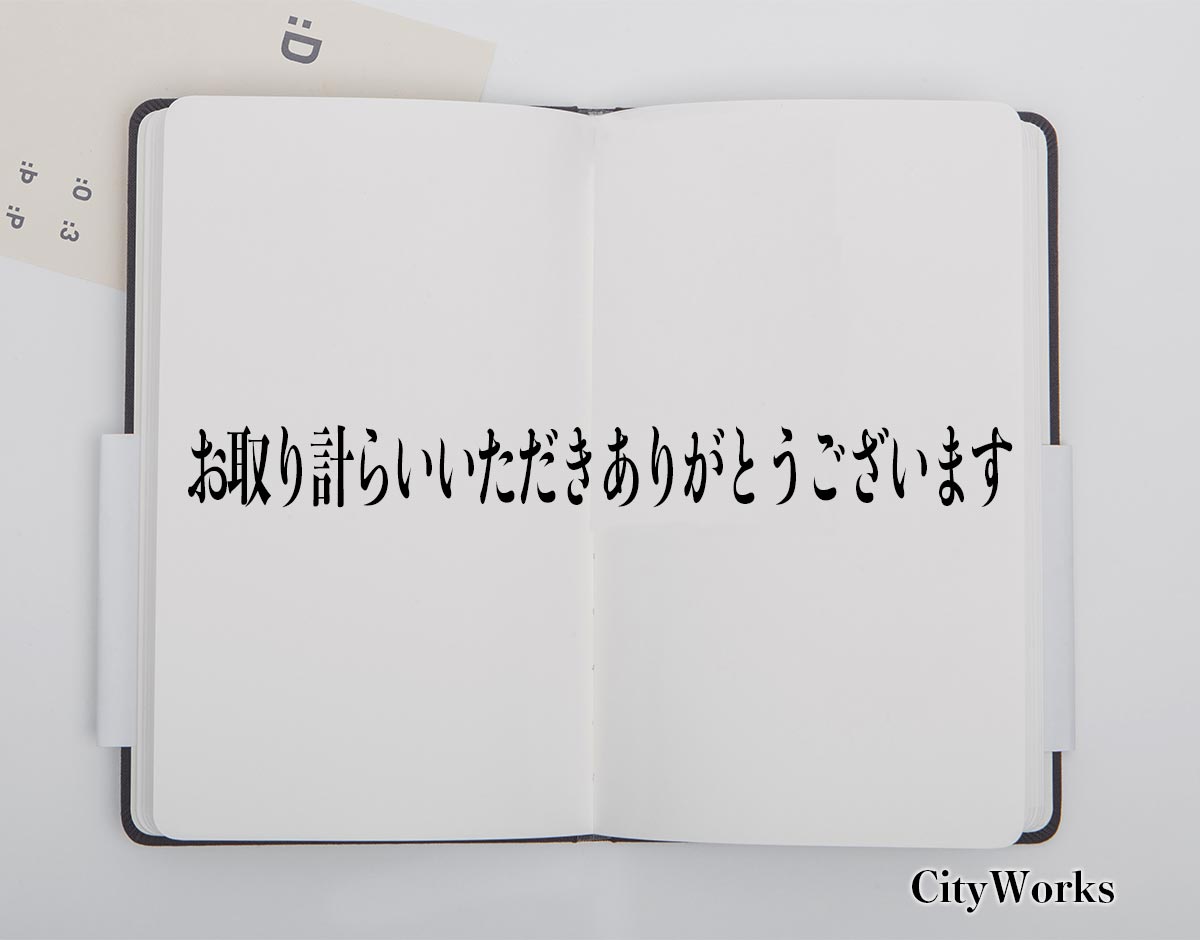 :D
:P
:O
:P
:3
お取り計らいいただきありがとうございます
CityWorks